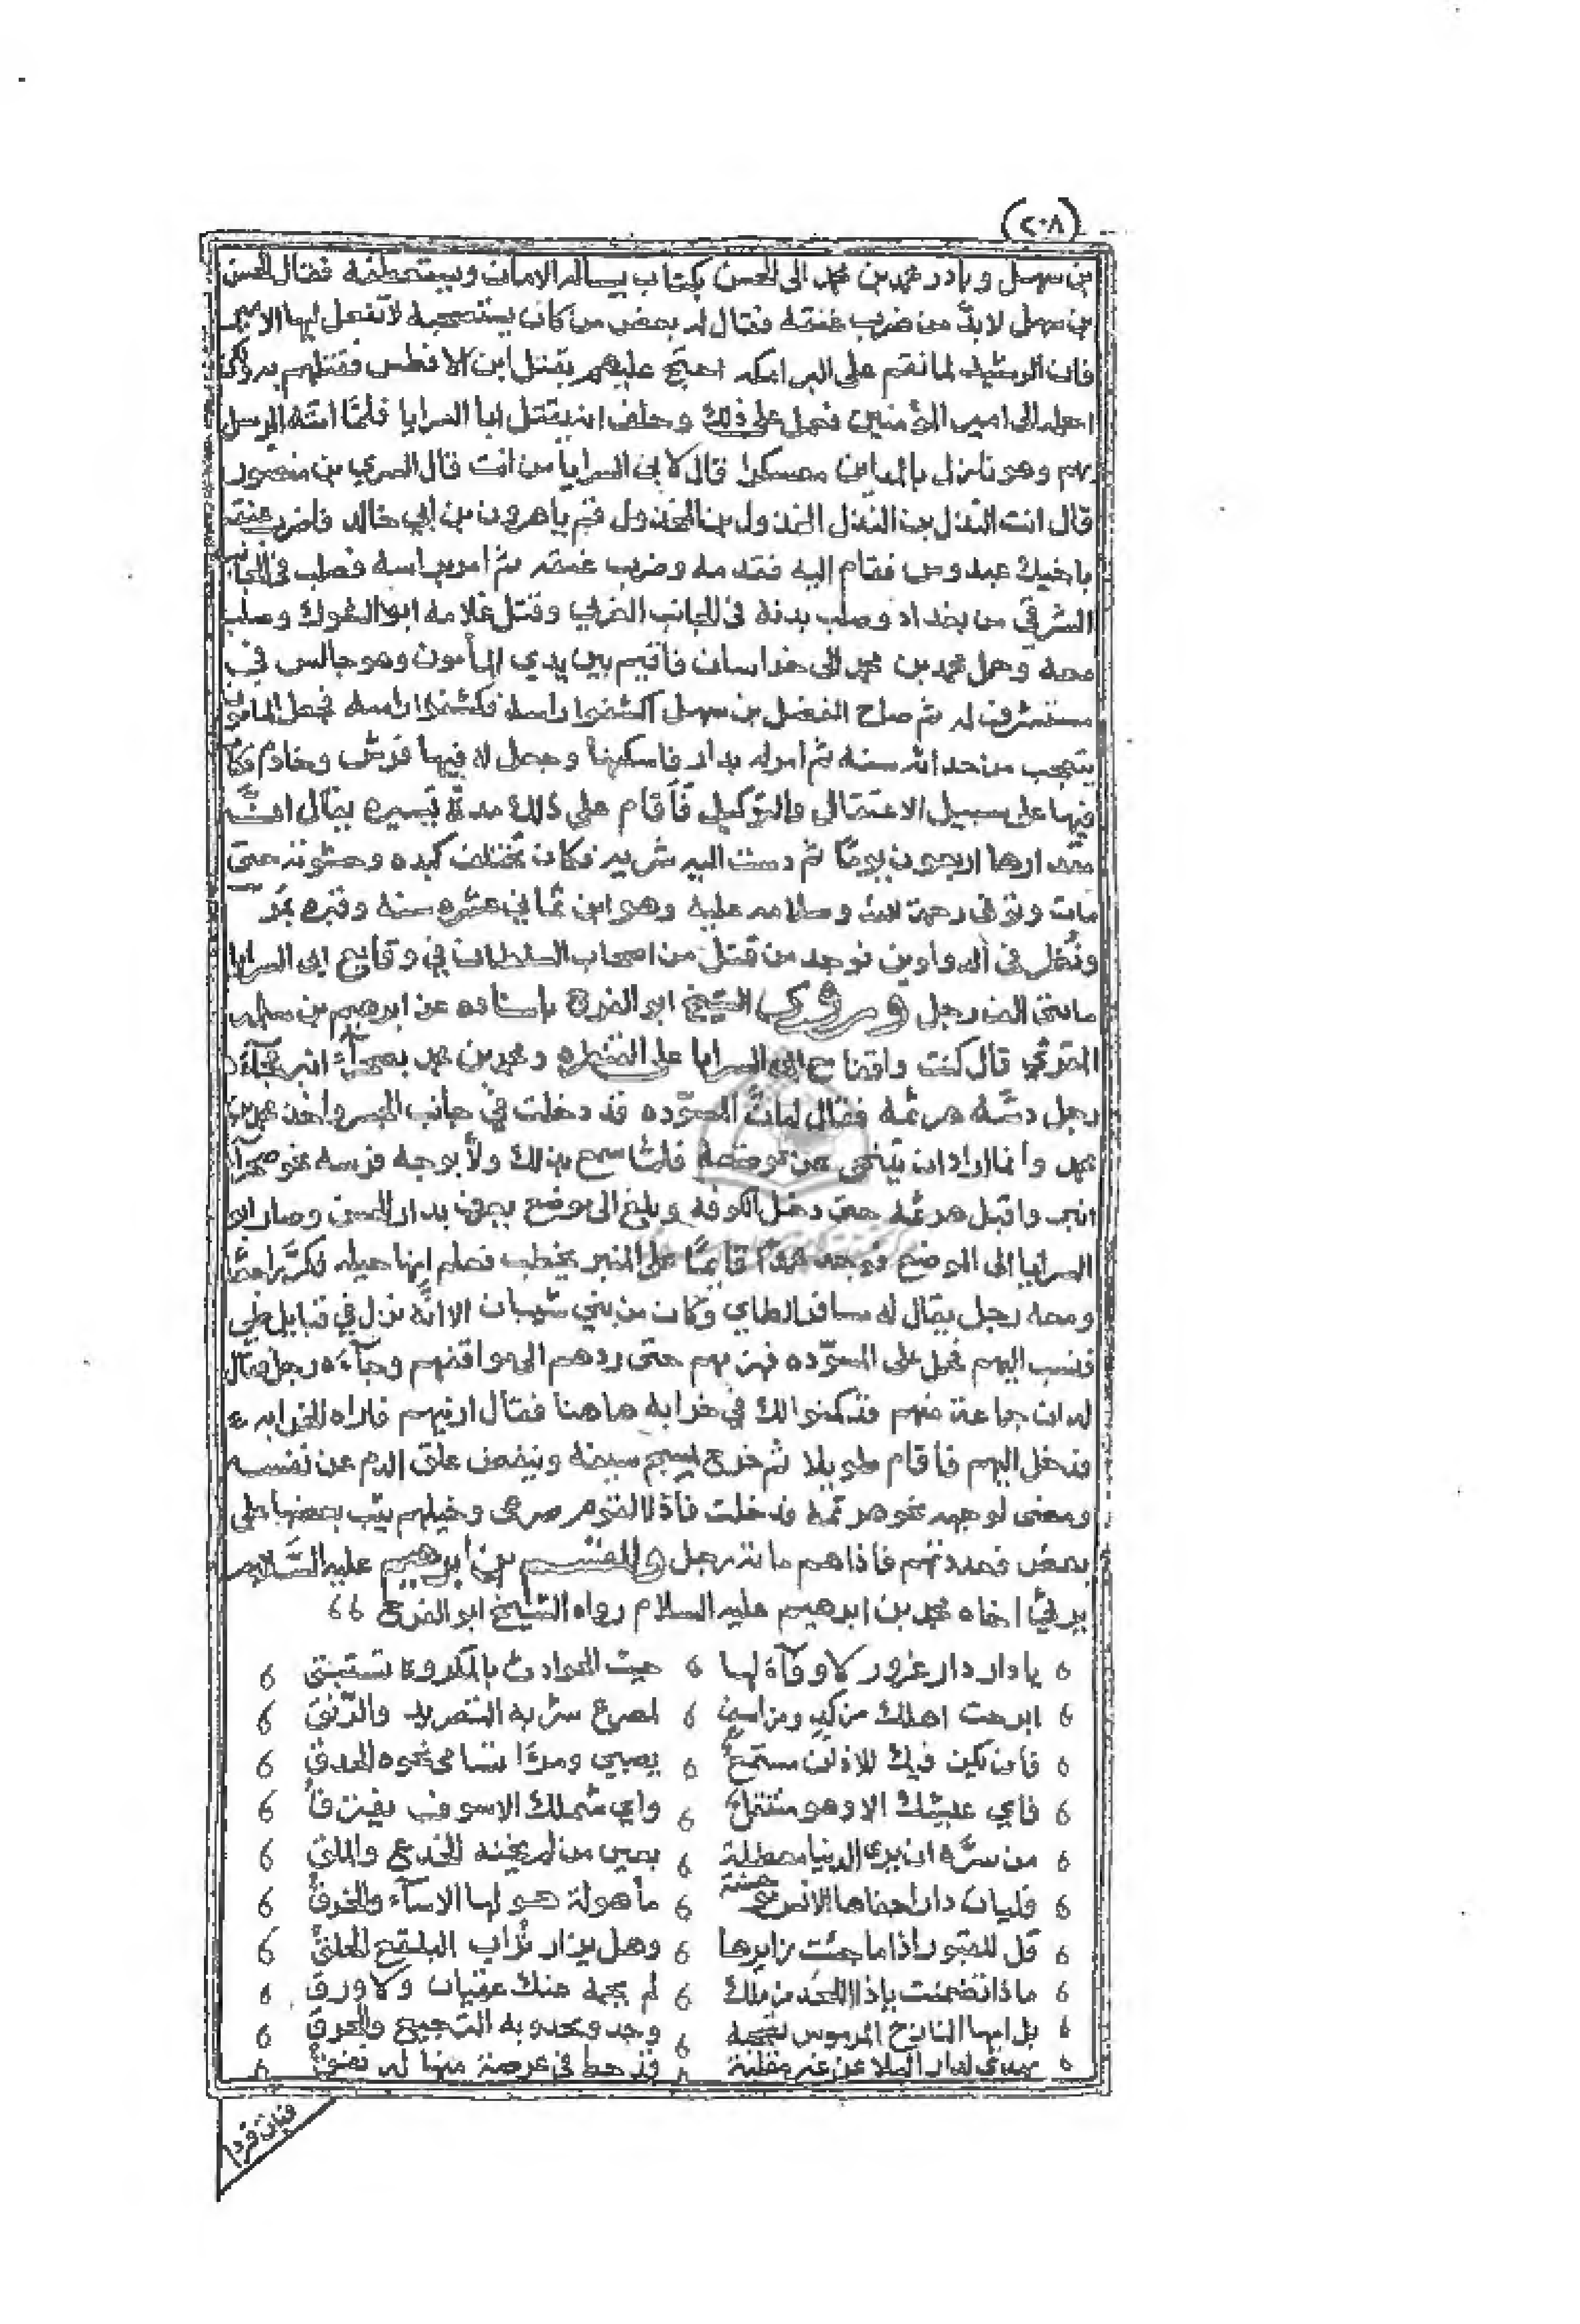 (٢٠٨)
بن سهل وبادر محمد بن محمد الى الحسن بكتاب يساله الامان ويستعطفه فقال الحسن
بن سهل لا بد من ضرب عنقه فقال له بعض من كان يستصحبه لا تفعل ايها الامير
فان الرشيد لما نقم على البرامكه احتج عليهم بقتل ابن الافطس فقتلهم به ولكن
احمله الى امير المؤمنين فعمل على ذلك وحلف انه يقتل ابا السرايا فلما اتته الرسل
بهم وهو نازل بالمداين معسكرا قال لابي السرايا من انت قال السري بن منصور
قال انت النذل بن النذل المخذول بن المخذول قم ياهرون بن ابي خالد فاضرب عنقه
باخيك عبدوس فقام اليه فقدمه وضرب عنقه ثم امر براسه فصلب في الجانب
الشرقي من بغداد وصلب بدنه في الجانب الغربي وقتل غلامه ابو الشوك وصلب
معه وحمل محمد بن محمد الى خراسان فاقيم بين يدي المأمون وهو جالس في
مستشرف له ثم صاح الفضل بن سهل اكشفوا راسه فكشفوا راسه فجعل المأمون
يتعجب من حداثة سنه ثم امر له بدار فاسكنها وجعل له فيها فرش وخادم فكان
فيها على سبيل الاعتقال والتوكيل فأقام على ذلك مدة يسيره يقال ان
مقدارها اربعون يوما ثم دست اليه شربه فكان يختلف كبده وحشوته حتى
مات وتوفي رحمة الله وسلامه عليه وهو ابن ثماني عشره سنه وقبره بمرو
ونظر في الدواوين فوجد من قتل من اصحاب السلطان في وقايع ابي السرايا
مائتي الف رجل وروى الشيخ ابو الفرج باسناده عن ابرهيم بن
قال كنت واقفا مع ابي السرايا على القنطره ومحمد بن محمد بصحراء اثير فجاءه
رجل دسه هرثمه فقال له ان المسوده قد دخلت في جانب الجسر واخذ محمد بن
محمد وانما اراد ان يتنحى عن موضعه فلما سمع بذلك ولا بوجه فرسه نحو صحراء
اثير واقبل هرثمه حتى دخل الكوفه وبلغ الى موضع يعرف بدار الحسن وصار ابو
السرايا الى الموضع فوجد محمدا قايما على المنبر يخطب فعلم انها حيله فكر راجعا
ومعه رجل يقال له مسافر الطاي وكان من بني شيبان الا انه نزل في قبايل طي
فنسب اليهم فحمل على المسوده فهزمهم حتى ردهم الى مواقفهم وجآءه رجل فقال
له ان جماعة منهم قد كمنوا لك في خرابه هاهنا فقال ارنيهم فاراه الخرابه
فدخل اليهم فأقام طويلا ثم خرج يمسح سيفه وينفض علق الدم عن نفسه
ومضى لوجهه نحو هرثمه فدخلت فاذا القوم صرعى وخيلهم يثب بعضها على
بعض فعددتهم فاذا هم مائة رجل وللقسم بن ابرهيم عليه السلام
يرثي اخاه محمد بن ابرهيم عليه السلام رواه الشيخ ابو الفرج
يا دار دار غرور لا وفآء لها حيث الحوادث بالمكروه تستبق
ابرحت اهلك من كد ومن اسف لمصرع شربه التصريد والرنق
فان يكن فيك للاذان مستمع يصبي ومرآ تسامى نحوه الحدق
فأي عيشك الا وهو منتقل واي شملك الا سوف يفترق
من سره ان يرى الدنيا معطلة بعين من لم يخنه الخدع والملق
فليات دارا جفاها الانس موحشة مأهولة حشوها الاشلاء والخرق
قل للقبور اذا ما جئت زايرها وهل يزار تراب البلقع الخلق
ماذا تضمنت ياذا اللحد من ملك لم يحمه منك عقيان ولا ورق
بل ايها النازح المرموس يصحبه وجد ويحدو به الترجيع والحرق
يهدى لدار البلا عن غير مقلية قد خط في عرصة منها له نفق
فبات فردا